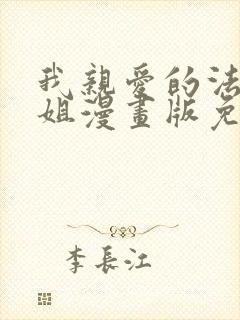 我親愛的法
姐漫畫版免
李長江